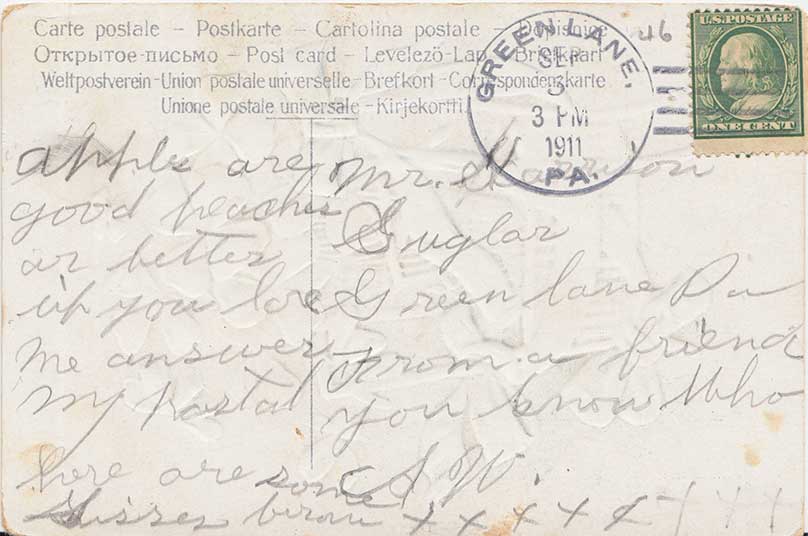 Carte postale – Postkarte – Cartolina postale – Dopisnice
Открытое-письмо – Post card – Levelező-Lap – Briefkaart
Weltpostverein-Union postale universelle-Brefkort-Correspondenzkarte
Unione postale universale-Kirjekortti
GREEN LANE,
SEP
3 PM
1911
PA.
46
U.S. POSTAGE
ONE CENT
apples are
good peaches
ar better
if you love
me answer
my postal
here are some
kisses
x x x x x x x x
Mr. Harrison
Guglar
Green lane Pa
From a friend
you know Who
A W.